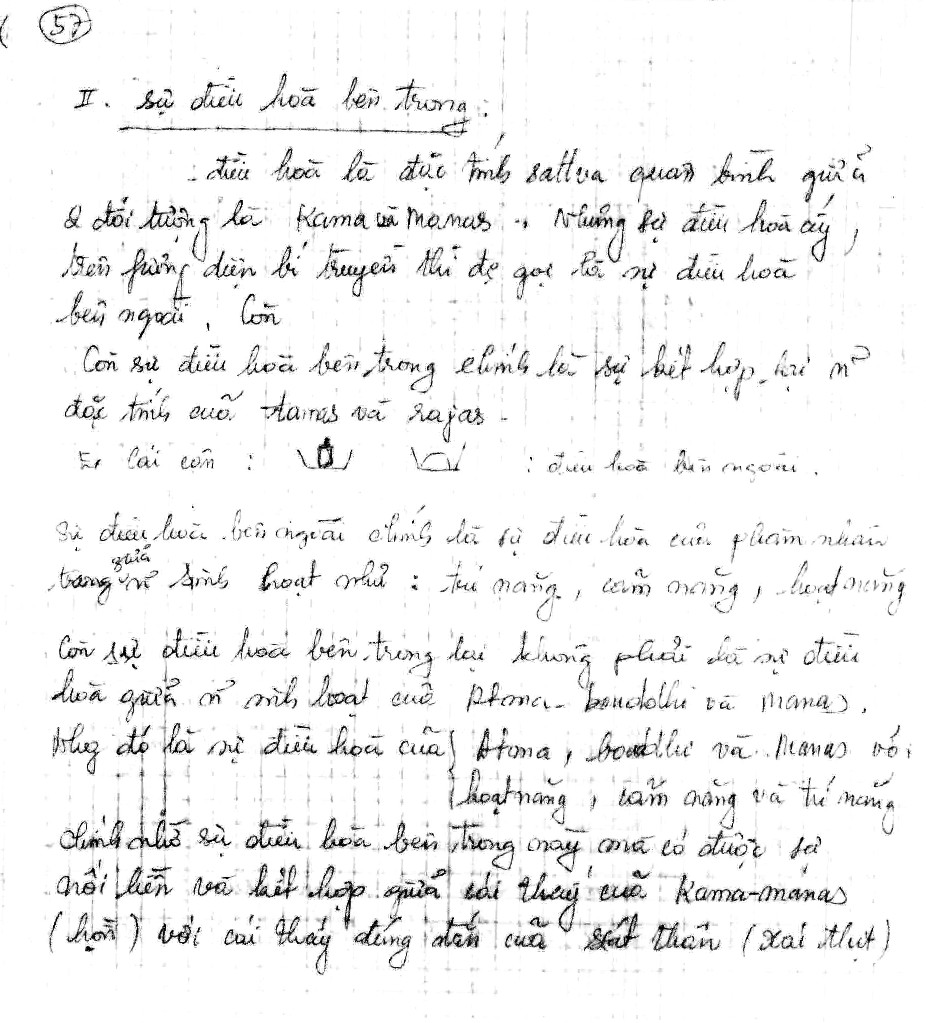 57
II. sự điều hoà bên trong :
: điều hoà là đức tính sattva quân bình giữa
2 đối tượng là Kama và Manas. Nhưng sự điều hoà ấy,
trên fương diện bí truyền thì đc gọi là sự điều hoà
bên ngoài. Còn
Còn sự điều hoà bên trong chính là sự kết hợp lại n~
đặc tính của tamas và rajas.
Cái cân : : điều hoà bên ngoài.
Sự điều hoà bên ngoài chính là sự điều hoà của phàm nhân
trong giữa n~ sinh hoạt như : trí năng, cảm năng, hoạt năng
Còn sự điều hoà bên trong lại không phải là sự điều
hoà giữa n~ sinh hoạt của Atma-bouddhi và Manas.
Nhg đó là sự điều hoà của { Atma, bouddhi và Manas với
hoạt năng, cảm năng và trí năng
Chính nhờ sự điều hoà bên trong này mà có được sự
nối liền và kết hợp giữa cái thấy của Kama-manas
(hồn) với cái thấy đúng đắn của thân (xác thịt)